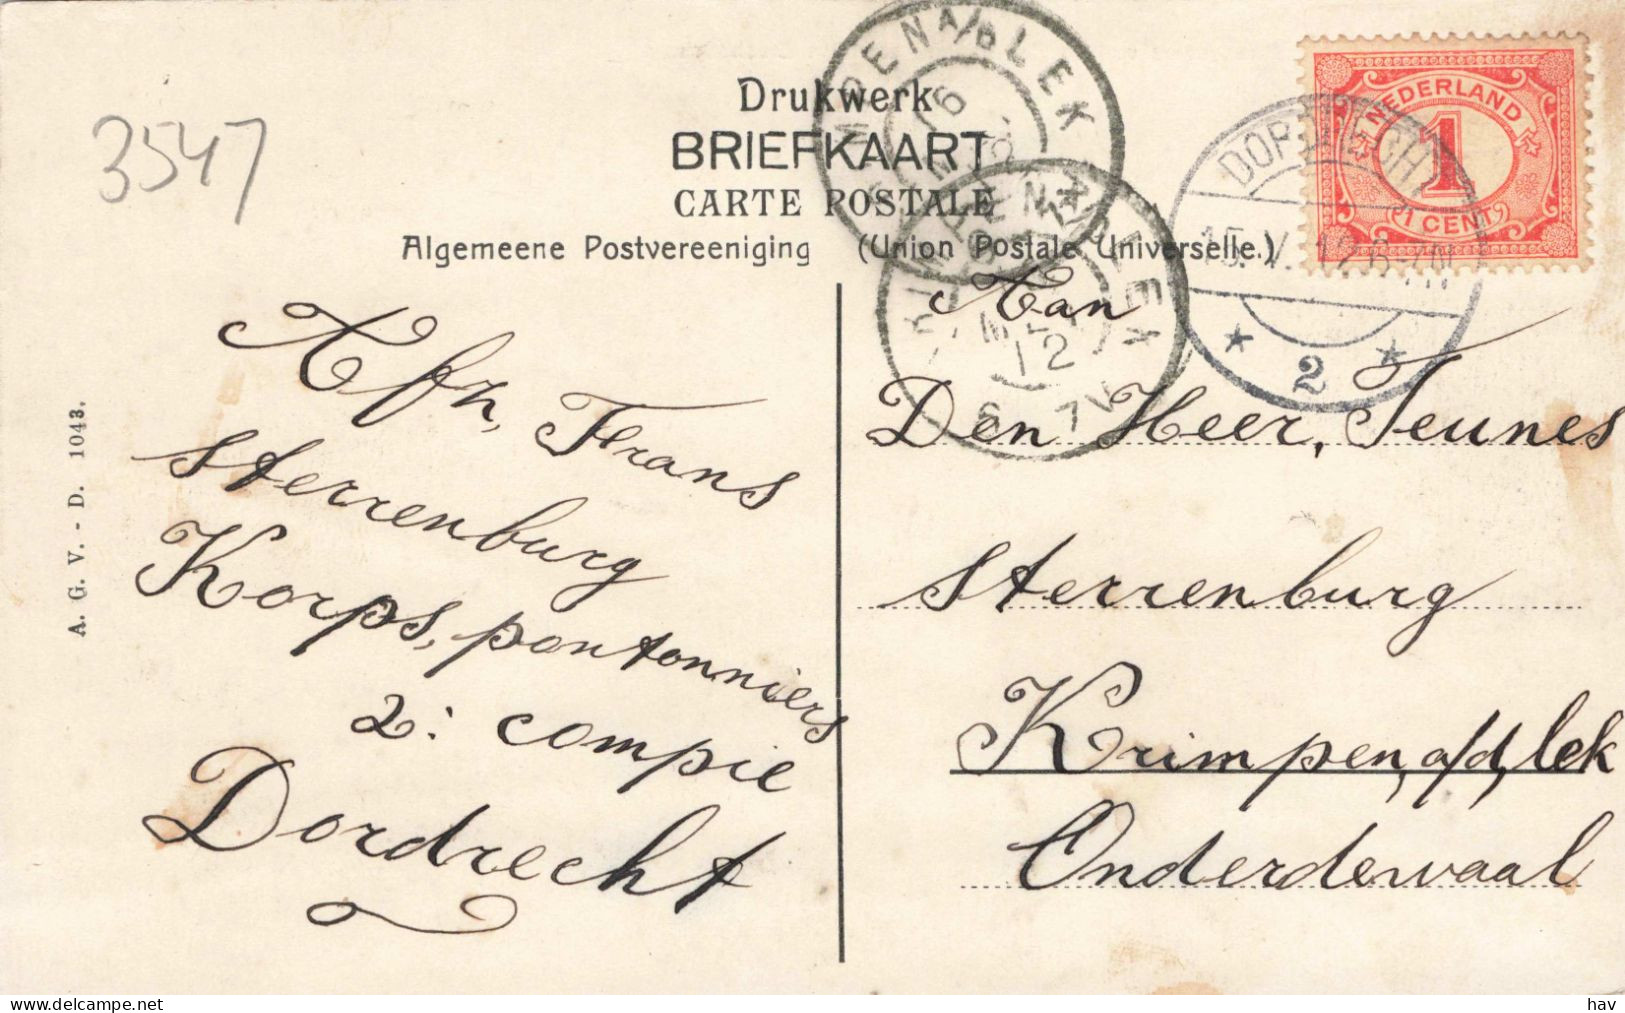 3547
Drukwerk
BRIEFKAART
CARTE POSTALE
Algemeene Postvereeniging (Union Postale Universelle.)
NEDERLAND
1
1 CENT
DORDRECHT
15.V.12.6-7N
2
MEI
12
A. G. V. - D. 1043.
Afz, Frans
Sterrenburg
Korps, pontonniers
2: compie
Dordrecht
Aan
Den Heer, Teunes
Sterrenburg
Krimpen, a/d, lek
Onderdewaal
www.delcampe.net
hav